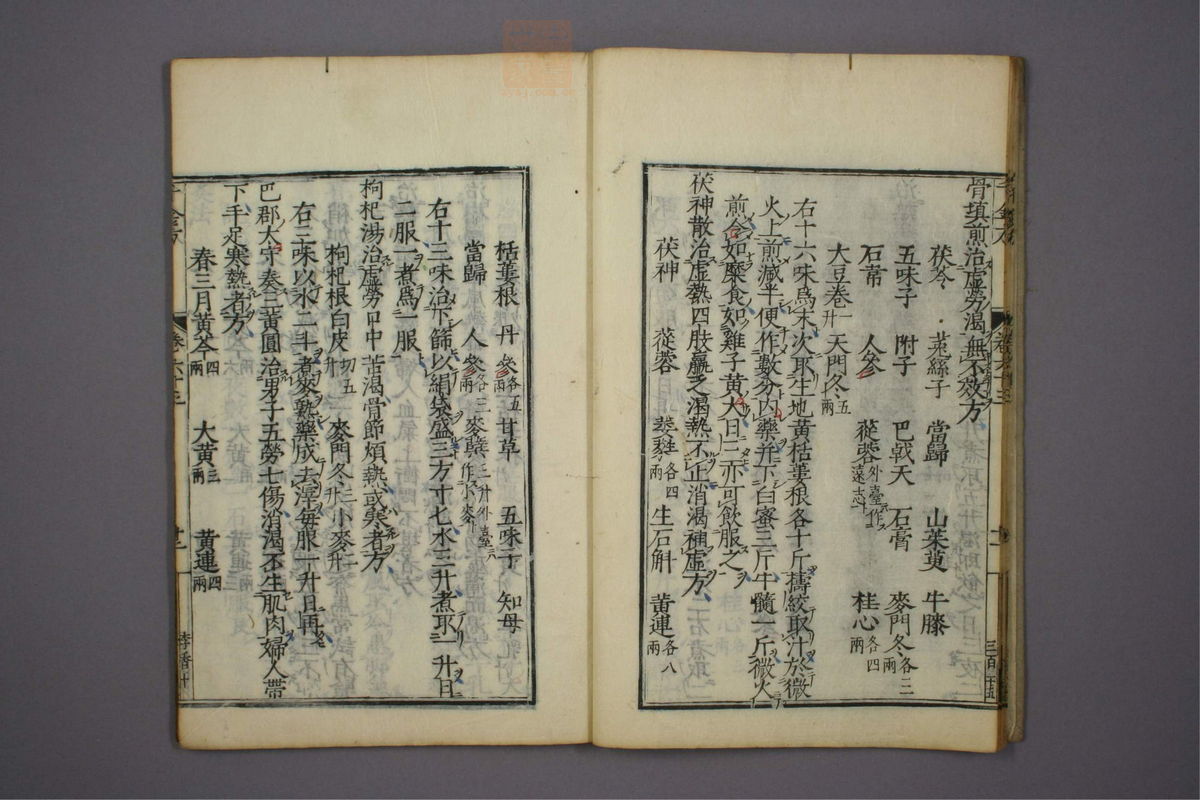 骨填煎治虛勞渴無不效方
茯苓 菟絲子 當歸 山茱萸 牛膝
五味子 附子 巴戟天 石膏 麥門冬各三兩
石韋 人參 蓯蓉外臺作遠志 桂心各四兩
大豆卷一升 天門冬五兩
右十六味爲末次取生地黃栝蔞根各十斤擣絞取汁於微
火上煎減半便作數分內藥并下白蜜三斤牛髓一斤微火
煎令如糜食如雞子黃大日三亦可飲服之
茯神散治虛熱四肢羸乏渴熱不止消渴補虛方
茯神 蓯蓉 葳蕤各四兩 生石斛 黃連各八兩
栝蔞根 丹參各五兩 甘草 五味子 知母
當歸 人參各三兩 麥蘖三升外臺作小麥
右十三味治下篩以絹袋盛三方寸匕水三升煮取一升日
二服一煮爲一服
枸杞湯治虛勞口中苦渴骨節煩熱或寒者方
枸杞根白皮切五升 麥門冬三升 小麥二升
右三味以水二斗煮麥熟藥成去滓每服一升日再
巴郡太守奏三黃圓治男子五勞七傷消渴不生肌肉婦人帶
下手足寒熱者方
春三月黃芩四兩 大黃三兩 黃連四兩